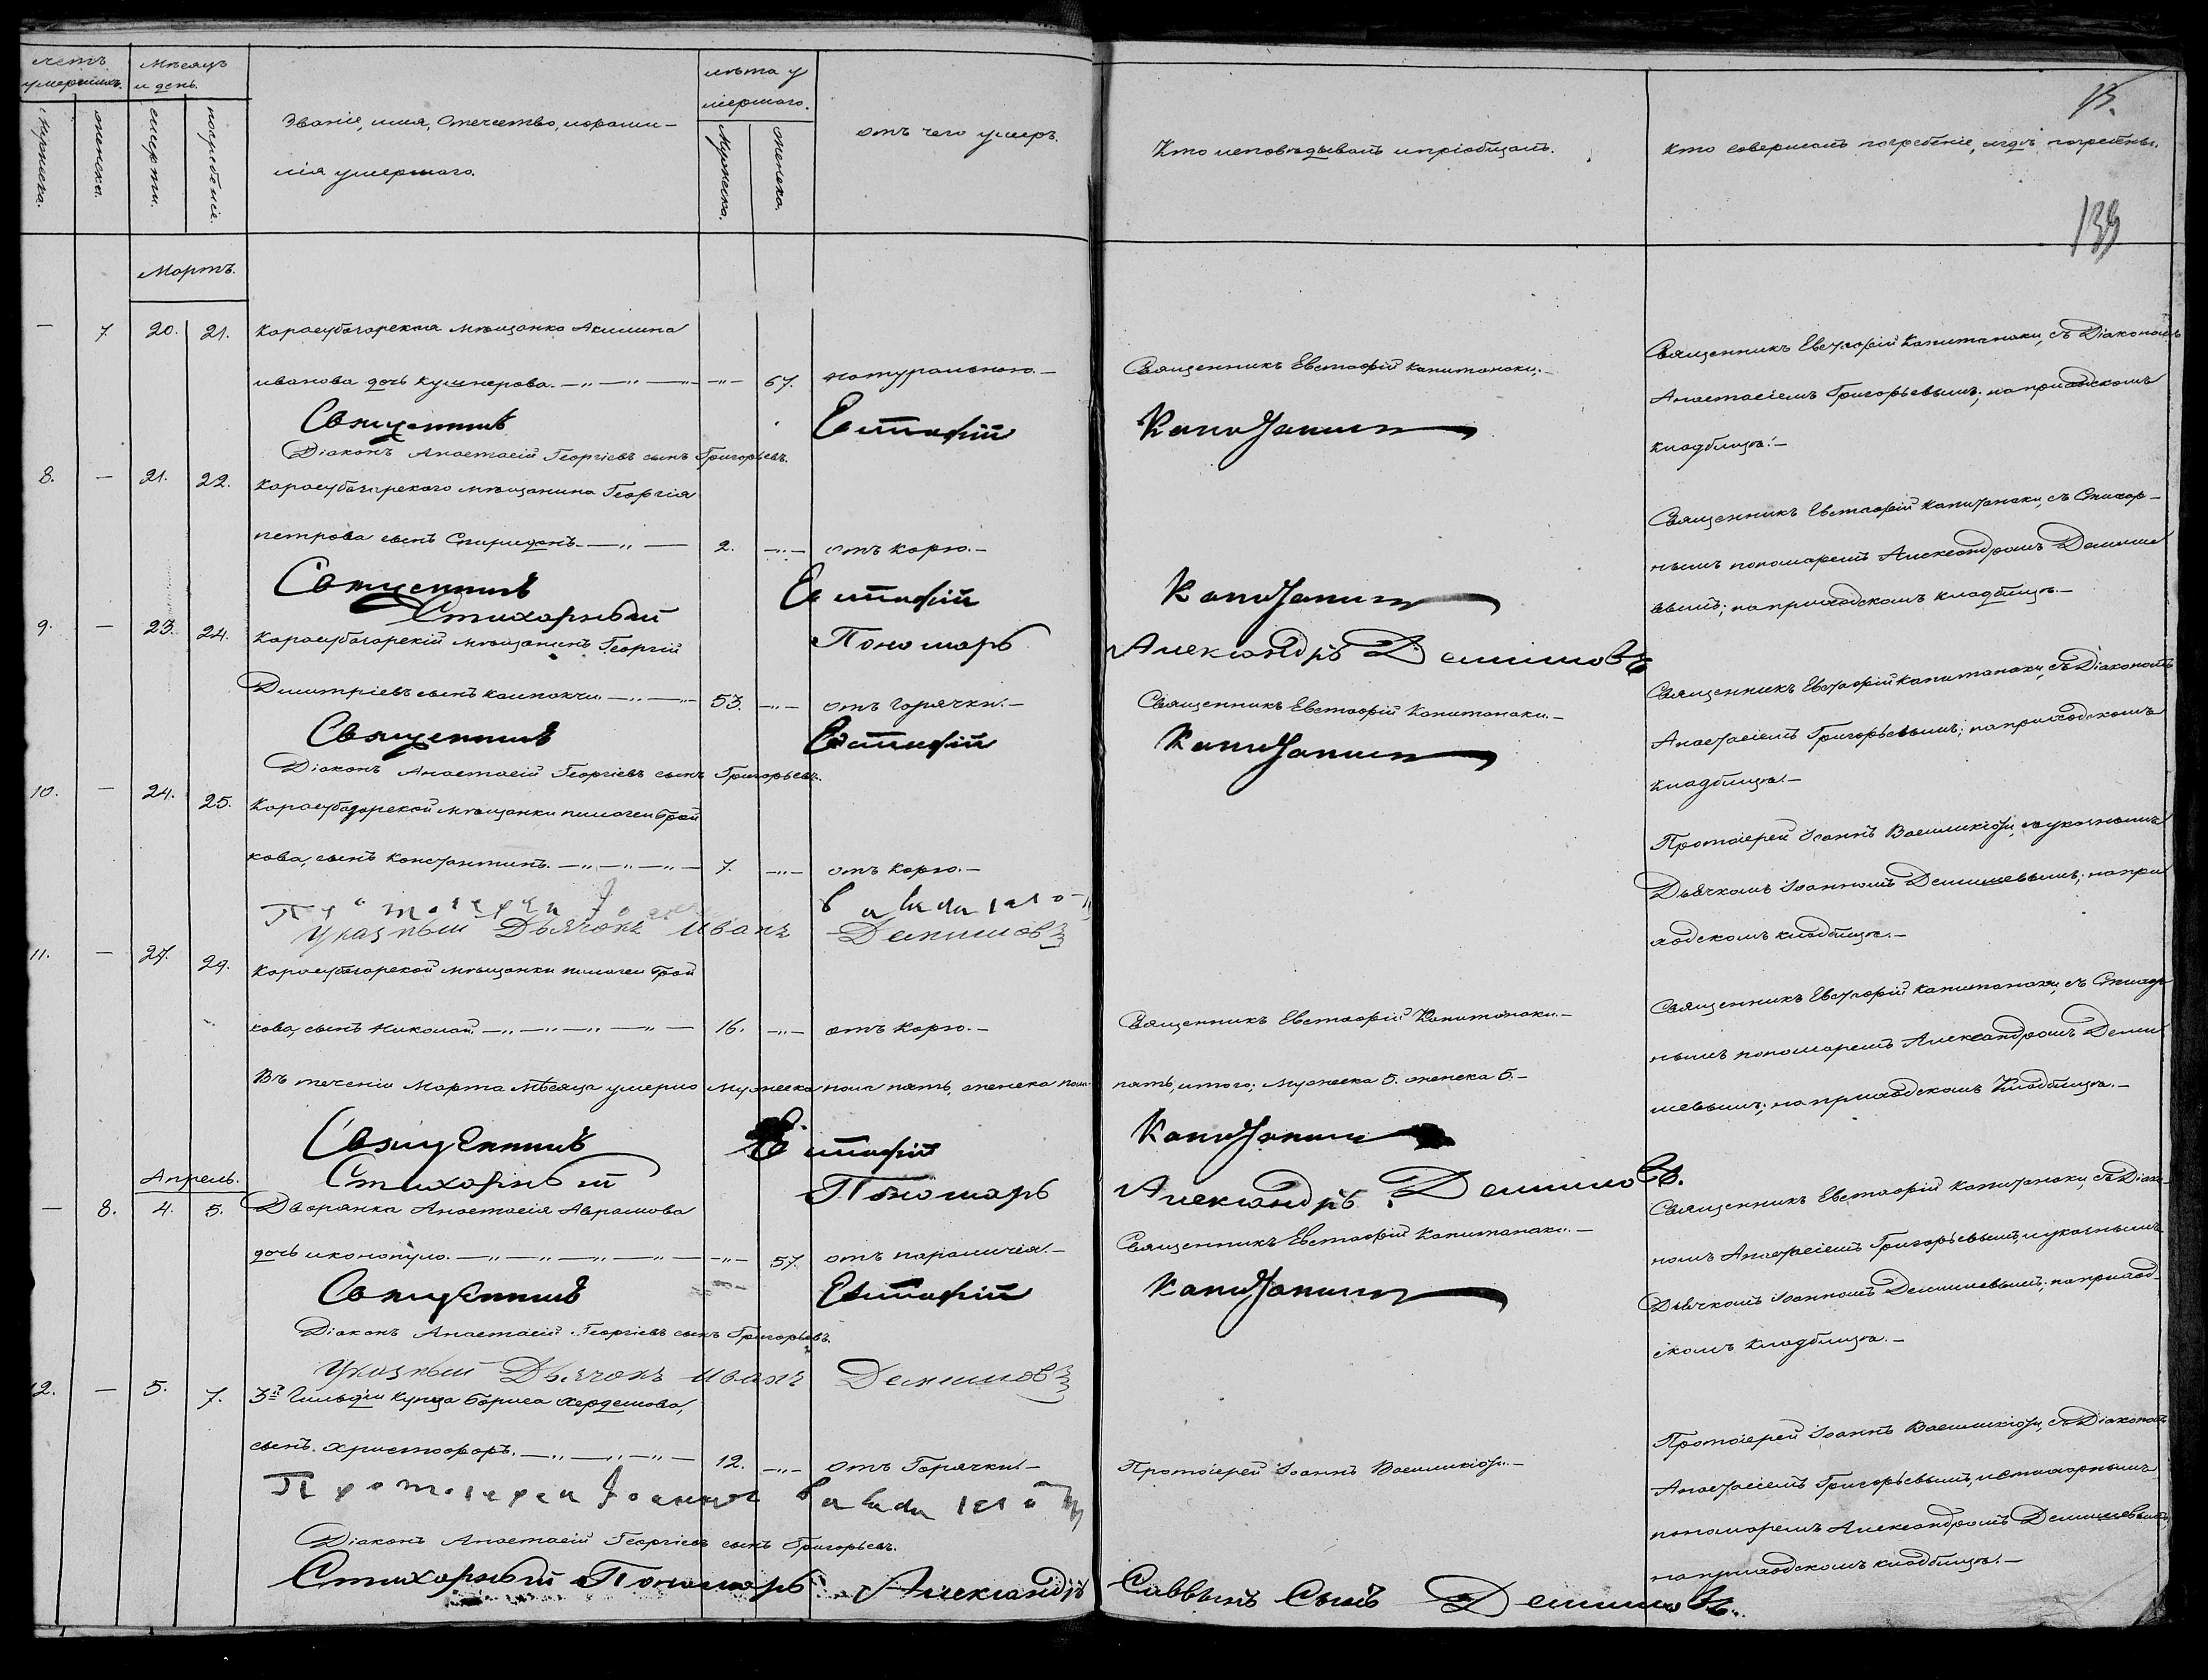 Счетъ умершихъ.
Мѣсяцъ и день.
Мужеска.
женска.
смерти.
погребенія.
Званіе, имя, Отечество, и фами-
лія умершаго.
лѣта у
мершаго.
Мужеска.
женска.
отъ чего умеръ.
Кто исповѣдывалъ и пріобщалъ.
Кто совершалъ погребеніе, и гдѣ погребены.
139
Мартъ.
— 7 20. 21. Карасубазарская мѣщанка Акилина
иванова дочь кушнерова. 67. натурально.—
Священникъ Евстафій Капитанаки.—
Священникъ Евстафій Капитанаки, съ Діакономъ
Анастасіемъ Григорьевымъ; на приходскомъ
кладбищѣ.—
Священникъ Евстафій Капитанаки
Діаконъ Анастасій Георгіевъ сынъ Григорьевъ.
8. — 21. 22. Карасубазарскаго мѣщанина Георгія
петрова сынъ Спиридонъ. 2. отъ корю.—
Священникъ Евстафій Капитанаки, съ Стихар-
нымъ пономаремъ Александромъ Демише
вымъ; на приходскомъ кладбищѣ.—
Священникъ Евстафій Капитанаки
Стихарный Пономарь Александръ Демишовъ
9. — 23. 24. Карасубазарскій мѣщанинъ Георгій
Димитріевъ сынъ калпакчи. 53. отъ горячки.—
Священникъ Евстафій Капитанаки.—
Священникъ Евстафій Капитанаки, съ Діакономъ
Анастасіемъ Григорьевымъ; на приходскомъ
кладбищѣ.—
Священникъ Евстафій Капитанаки
Діаконъ Анастасій Георгіевъ сынъ Григорьевъ.
10. — 24. 25. Карасубазарской мѣщанки пилагеи Трай
кова, сынъ Константинъ. 7. отъ корю.—
Протоіерей Іоаннъ Василикіоти, съ указнымъ
Дьячкомъ Іоанномъ Демишевымъ; на при
ходскомъ кладбищѣ.—
Протоіерей
Указный Дьячокъ Иванъ Демишовъ
11. — 27. 29. Карасубазарской мѣщанки пилагеи Трай
кова, сынъ Николай. 16. отъ корю.—
Священникъ Евстафій Капитанаки.—
Священникъ Евстафій Капитанаки, съ Стихар
нымъ пономаремъ Александромъ Деми
шевымъ; на приходскомъ Кладбищѣ.—
Въ теченіи Марта Мѣсяца умерло мужеска пола пять, женска пола пять, итого; мужеска 5. женска 5.—
Священникъ Евстафій Капитанаки
Стихарный Пономарь Александръ Демишовъ.
Апрель.
— 8. 4. 5. Дворянка Анастасія Аврамова
дочь икономуло. 57. отъ параличія.—
Священникъ Евстафій Капитанаки.—
Священникъ Евстафій Капитанаки, съ Діако-
номъ Анастасіемъ Григорьевымъ, и указнымъ
Дьячкомъ Іоанномъ Демишевымъ; на приход-
скомъ кладбищѣ.—
Священникъ Евстафій Капитанаки
Діаконъ Анастасій Георгіевъ сынъ Григорьевъ.
Указный Дьячокъ Иванъ Демишовъ
12. — 5. 7. 3й Гильдіи Купца Бориса
сынъ. Христофоръ. 12. отъ Горячки.—
Протоіерей Іоаннъ Василикіоти.—
Протоіерей Іоаннъ Василикіоти, съ Діакономъ
Анастасіемъ Григорьевымъ, и стихарнымъ
пономаремъ Александромъ Демишевымъ,
на приходскомъ кладбищѣ.—
Протоіерей Іоаннъ
Діаконъ Анастасій Георгіевъ сынъ Григорьевъ.
Стихарный Пономарь Александръ Саввинъ Сынъ Демишовъ.